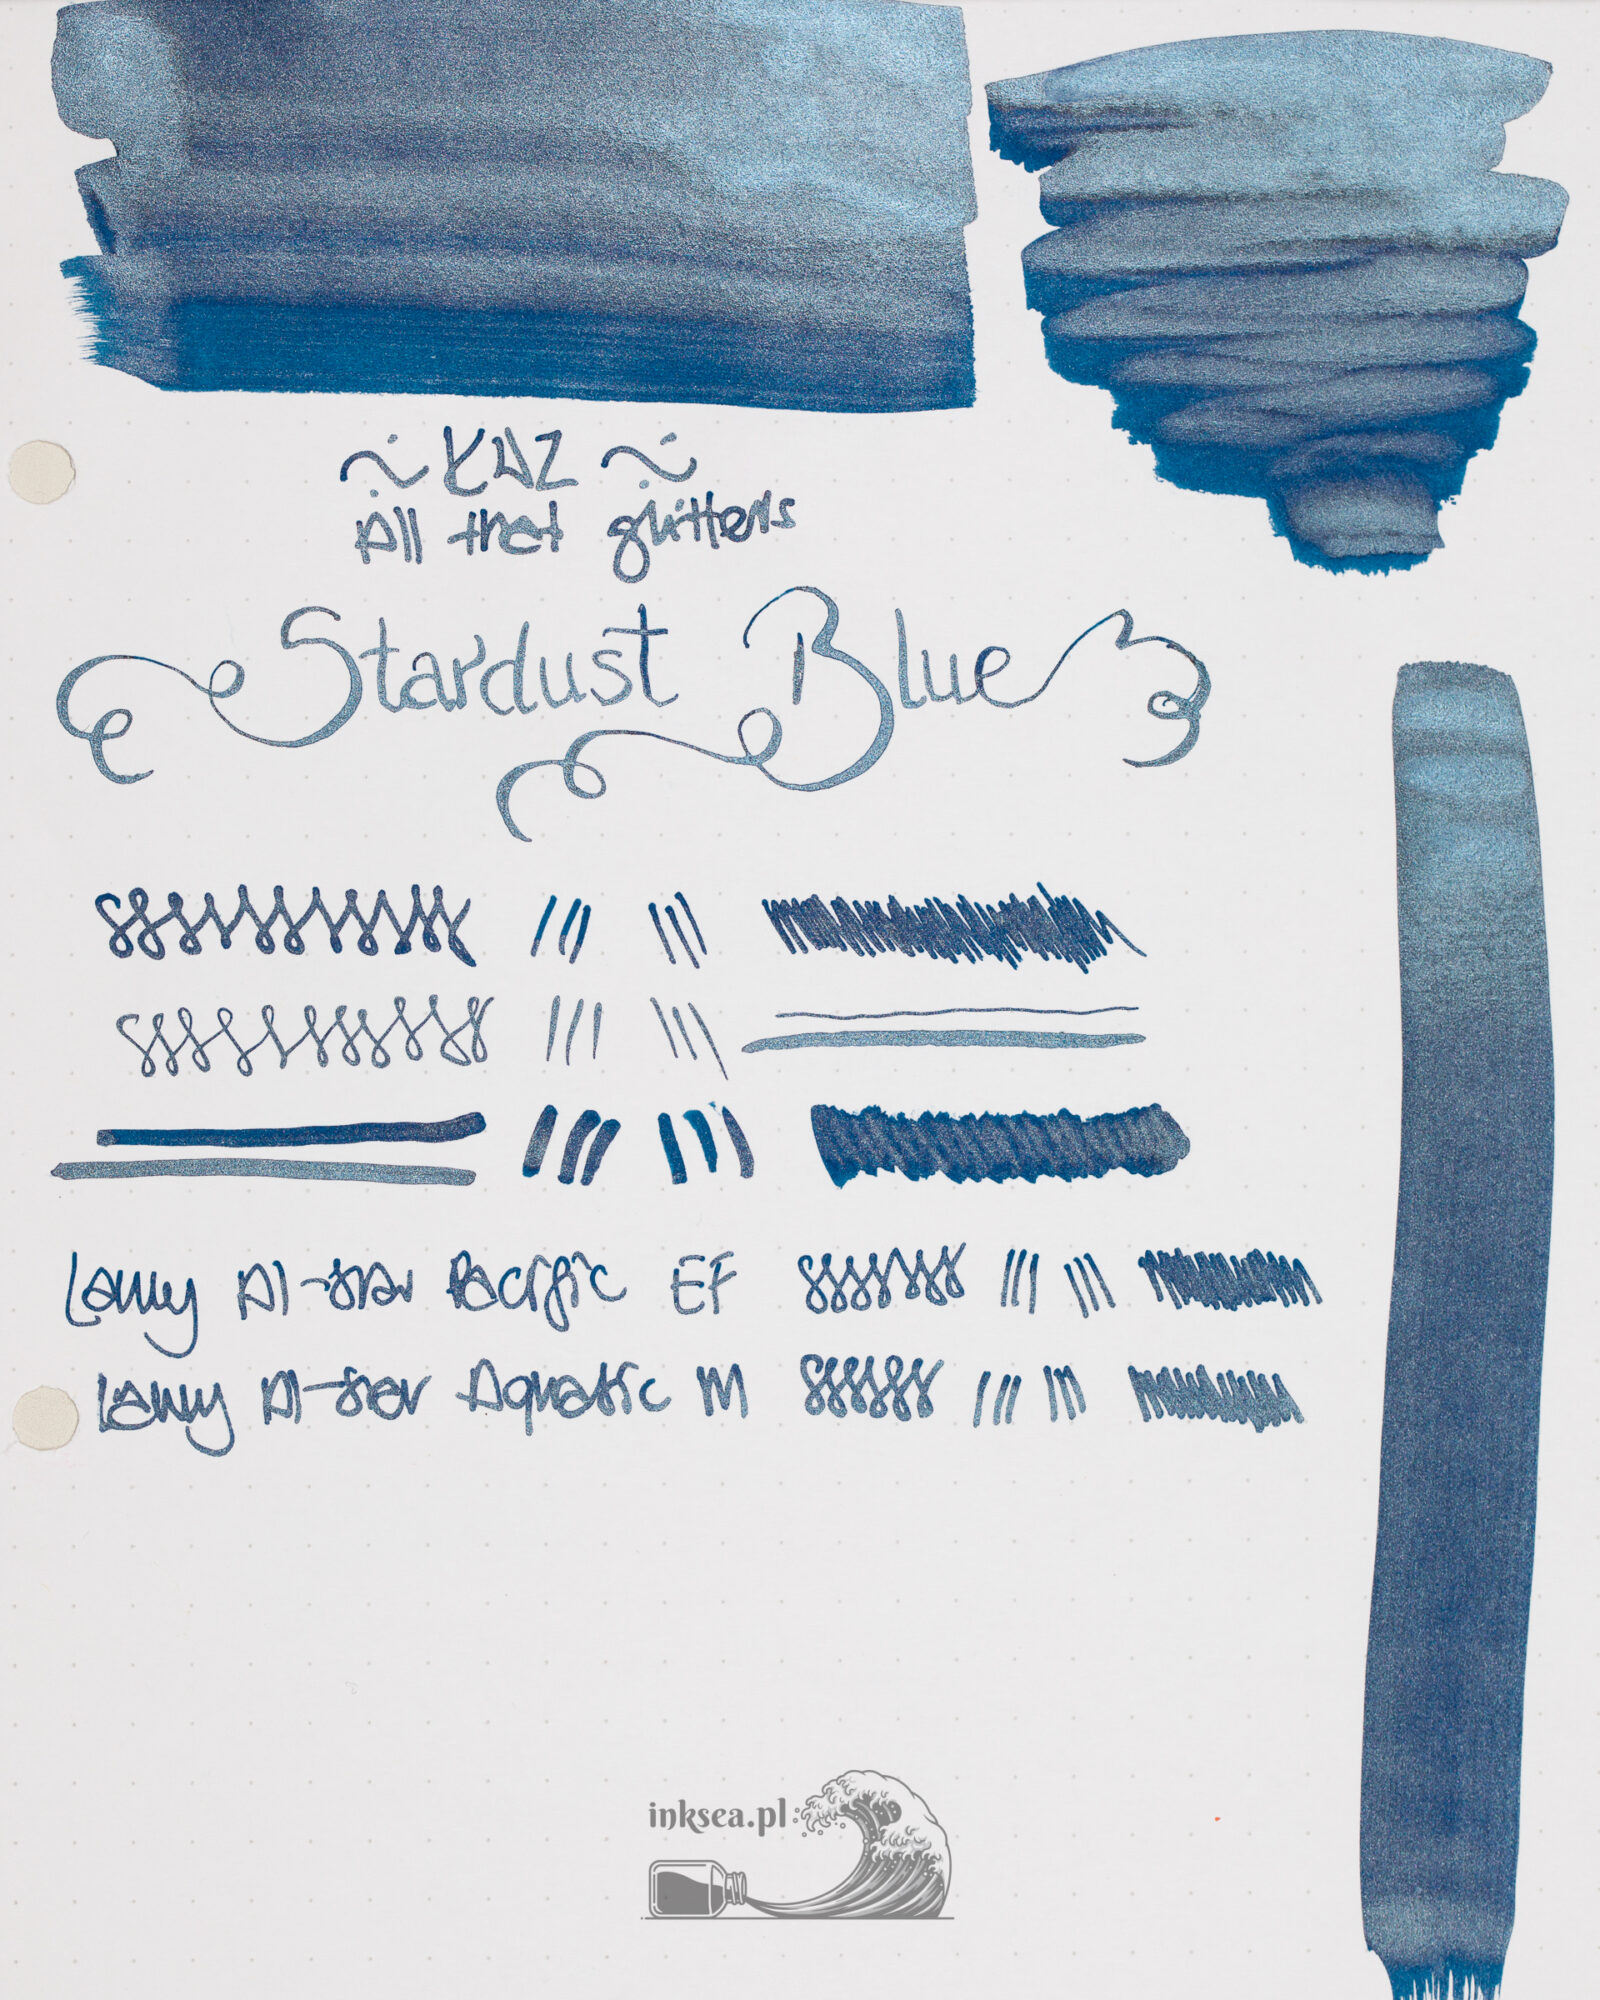 ~ KWZ ~
All that glitters
Stardust Blue
Lamy Al-star Pacific EF
Lamy Al-star Aquatic M
inksea.pl